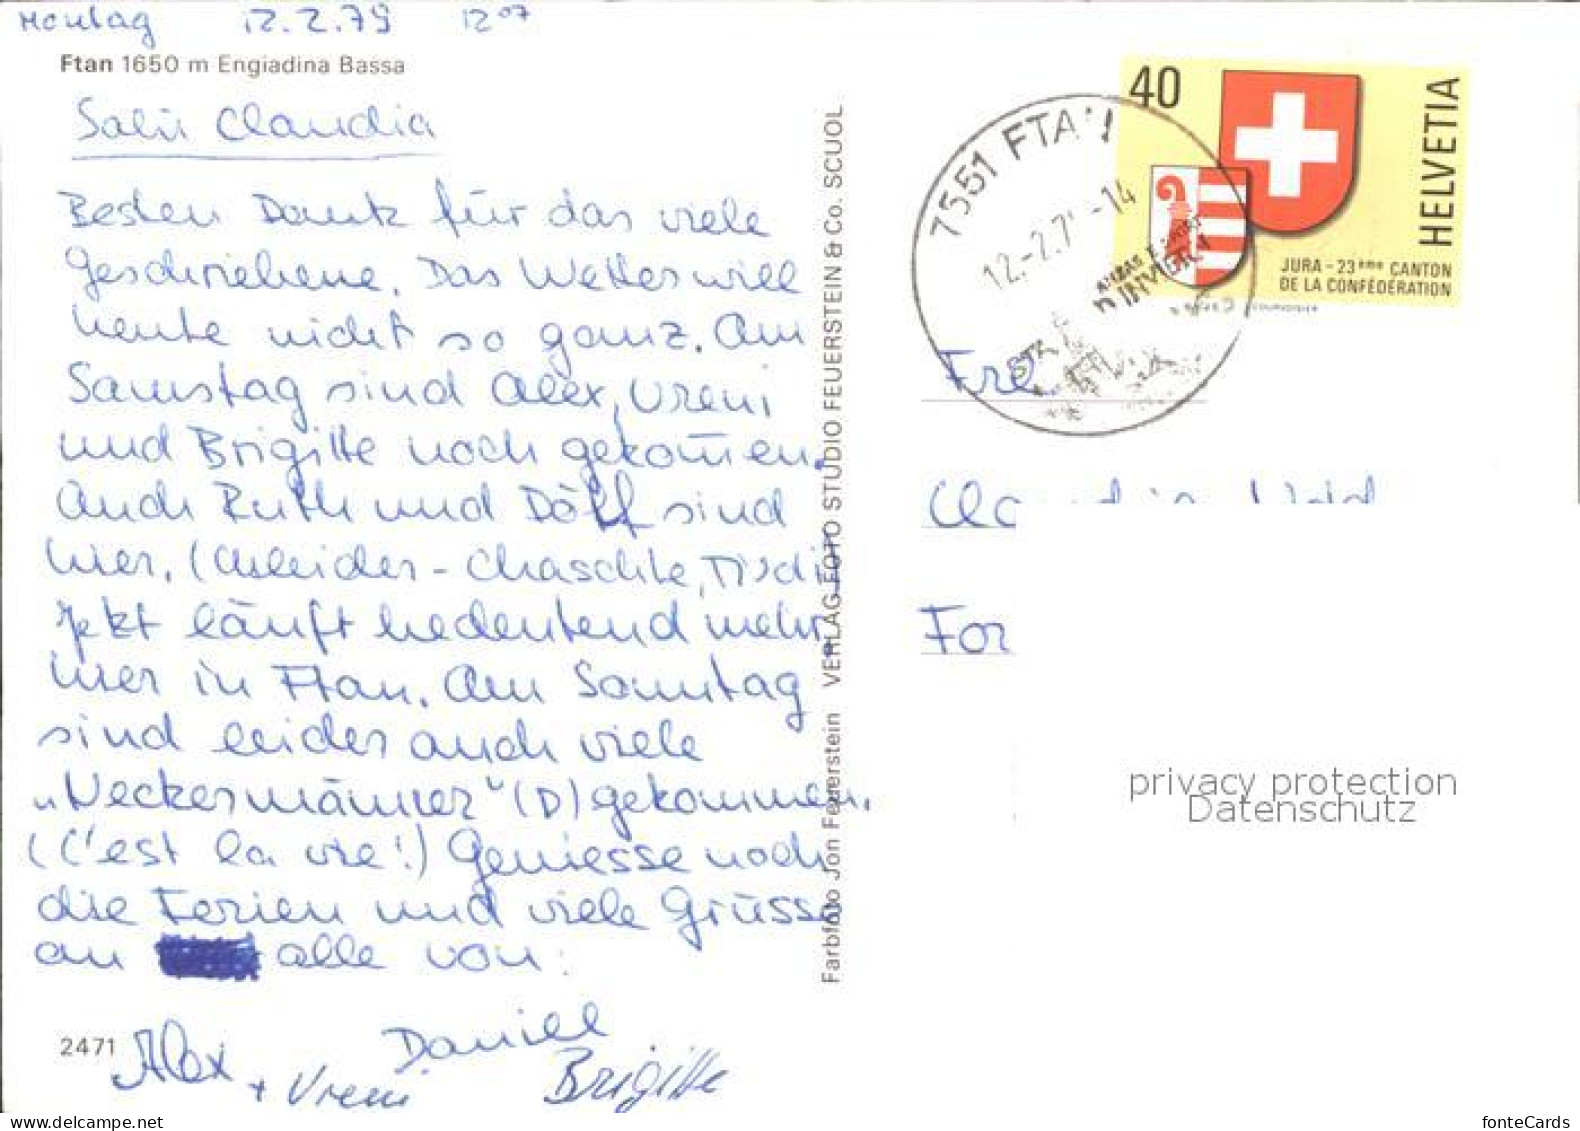 Montag 12.2.79 12⁰⁷
Ftan 1650 m Engiadina Bassa
Salü Claudia
Besten Dank für das viele
geschriebene. Das Wetter will
heute nicht so ganz. Am
Samstag sind Alex, Vreni
und Brigitte noch gekom̄en.
Auch Ruth und Dölf sind
hier. (Chleider - Chaschte,
Jetzt läuft bedeutend mehr
hier in Ftan. Am Sonntag
sind leider auch viele
„Neckermänner" (D) gekommen.
(C'est la vie!) Geniesse noch
die Ferien und viele Grüsse
an alle von:
Alex + Vreni Daniel
Brigitte
2471
Farbfoto Jon Feuerstein VERLAG FOTO STUDIO FEUERSTEIN & Co. SCUOL
40
HELVETIA
JURA - 23ème CANTON
DE LA CONFÉDÉRATION
7551 FTAN
12.-2.79-14
Fre
Cla
For
privacy protection
Datenschutz
www.delcampe.net
fonteCards